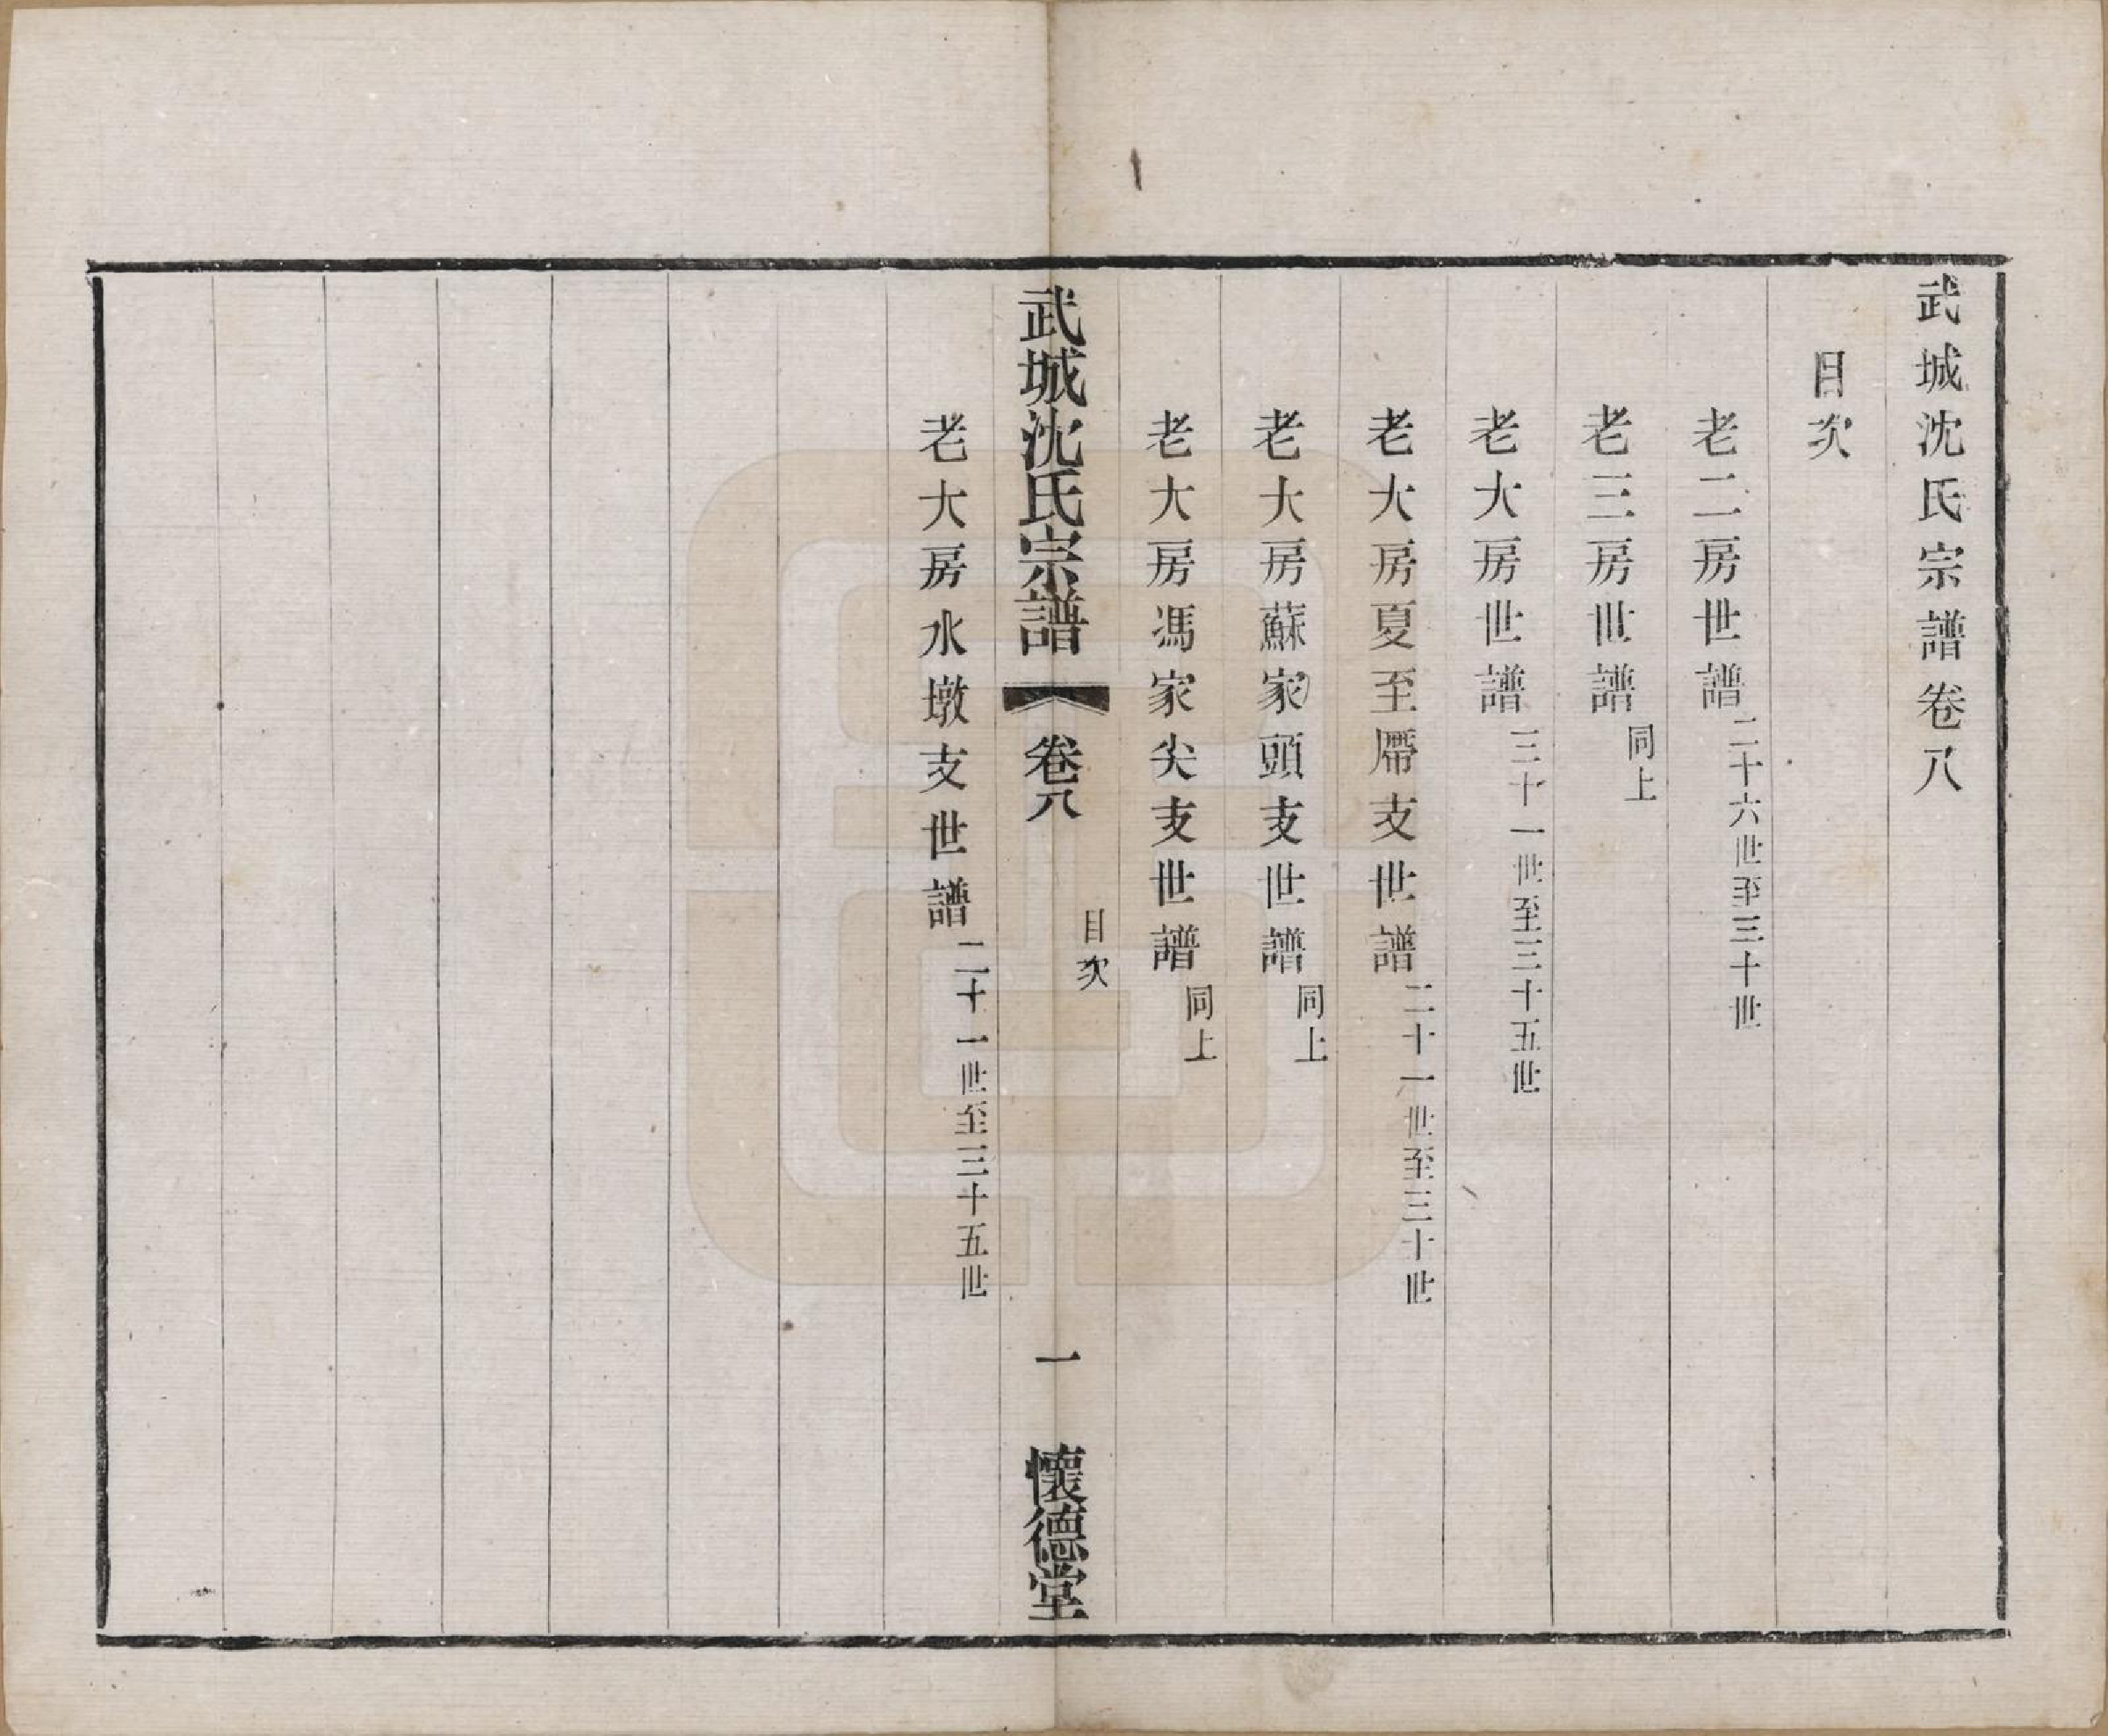 武城沈氏宗譜卷八
目次
老二房世譜二十六世至三十世
老三房世譜同上
老大房世譜三十一世至三十五世
老大房夏至㕑支世譜二十一世至三十世
老大房蘇家頭支世譜同上
老大房馮家尖支世譜同上
武城沈氏宗譜 卷八 目次 一 懷德堂
老大房水墩支世譜二十一世至三十五世